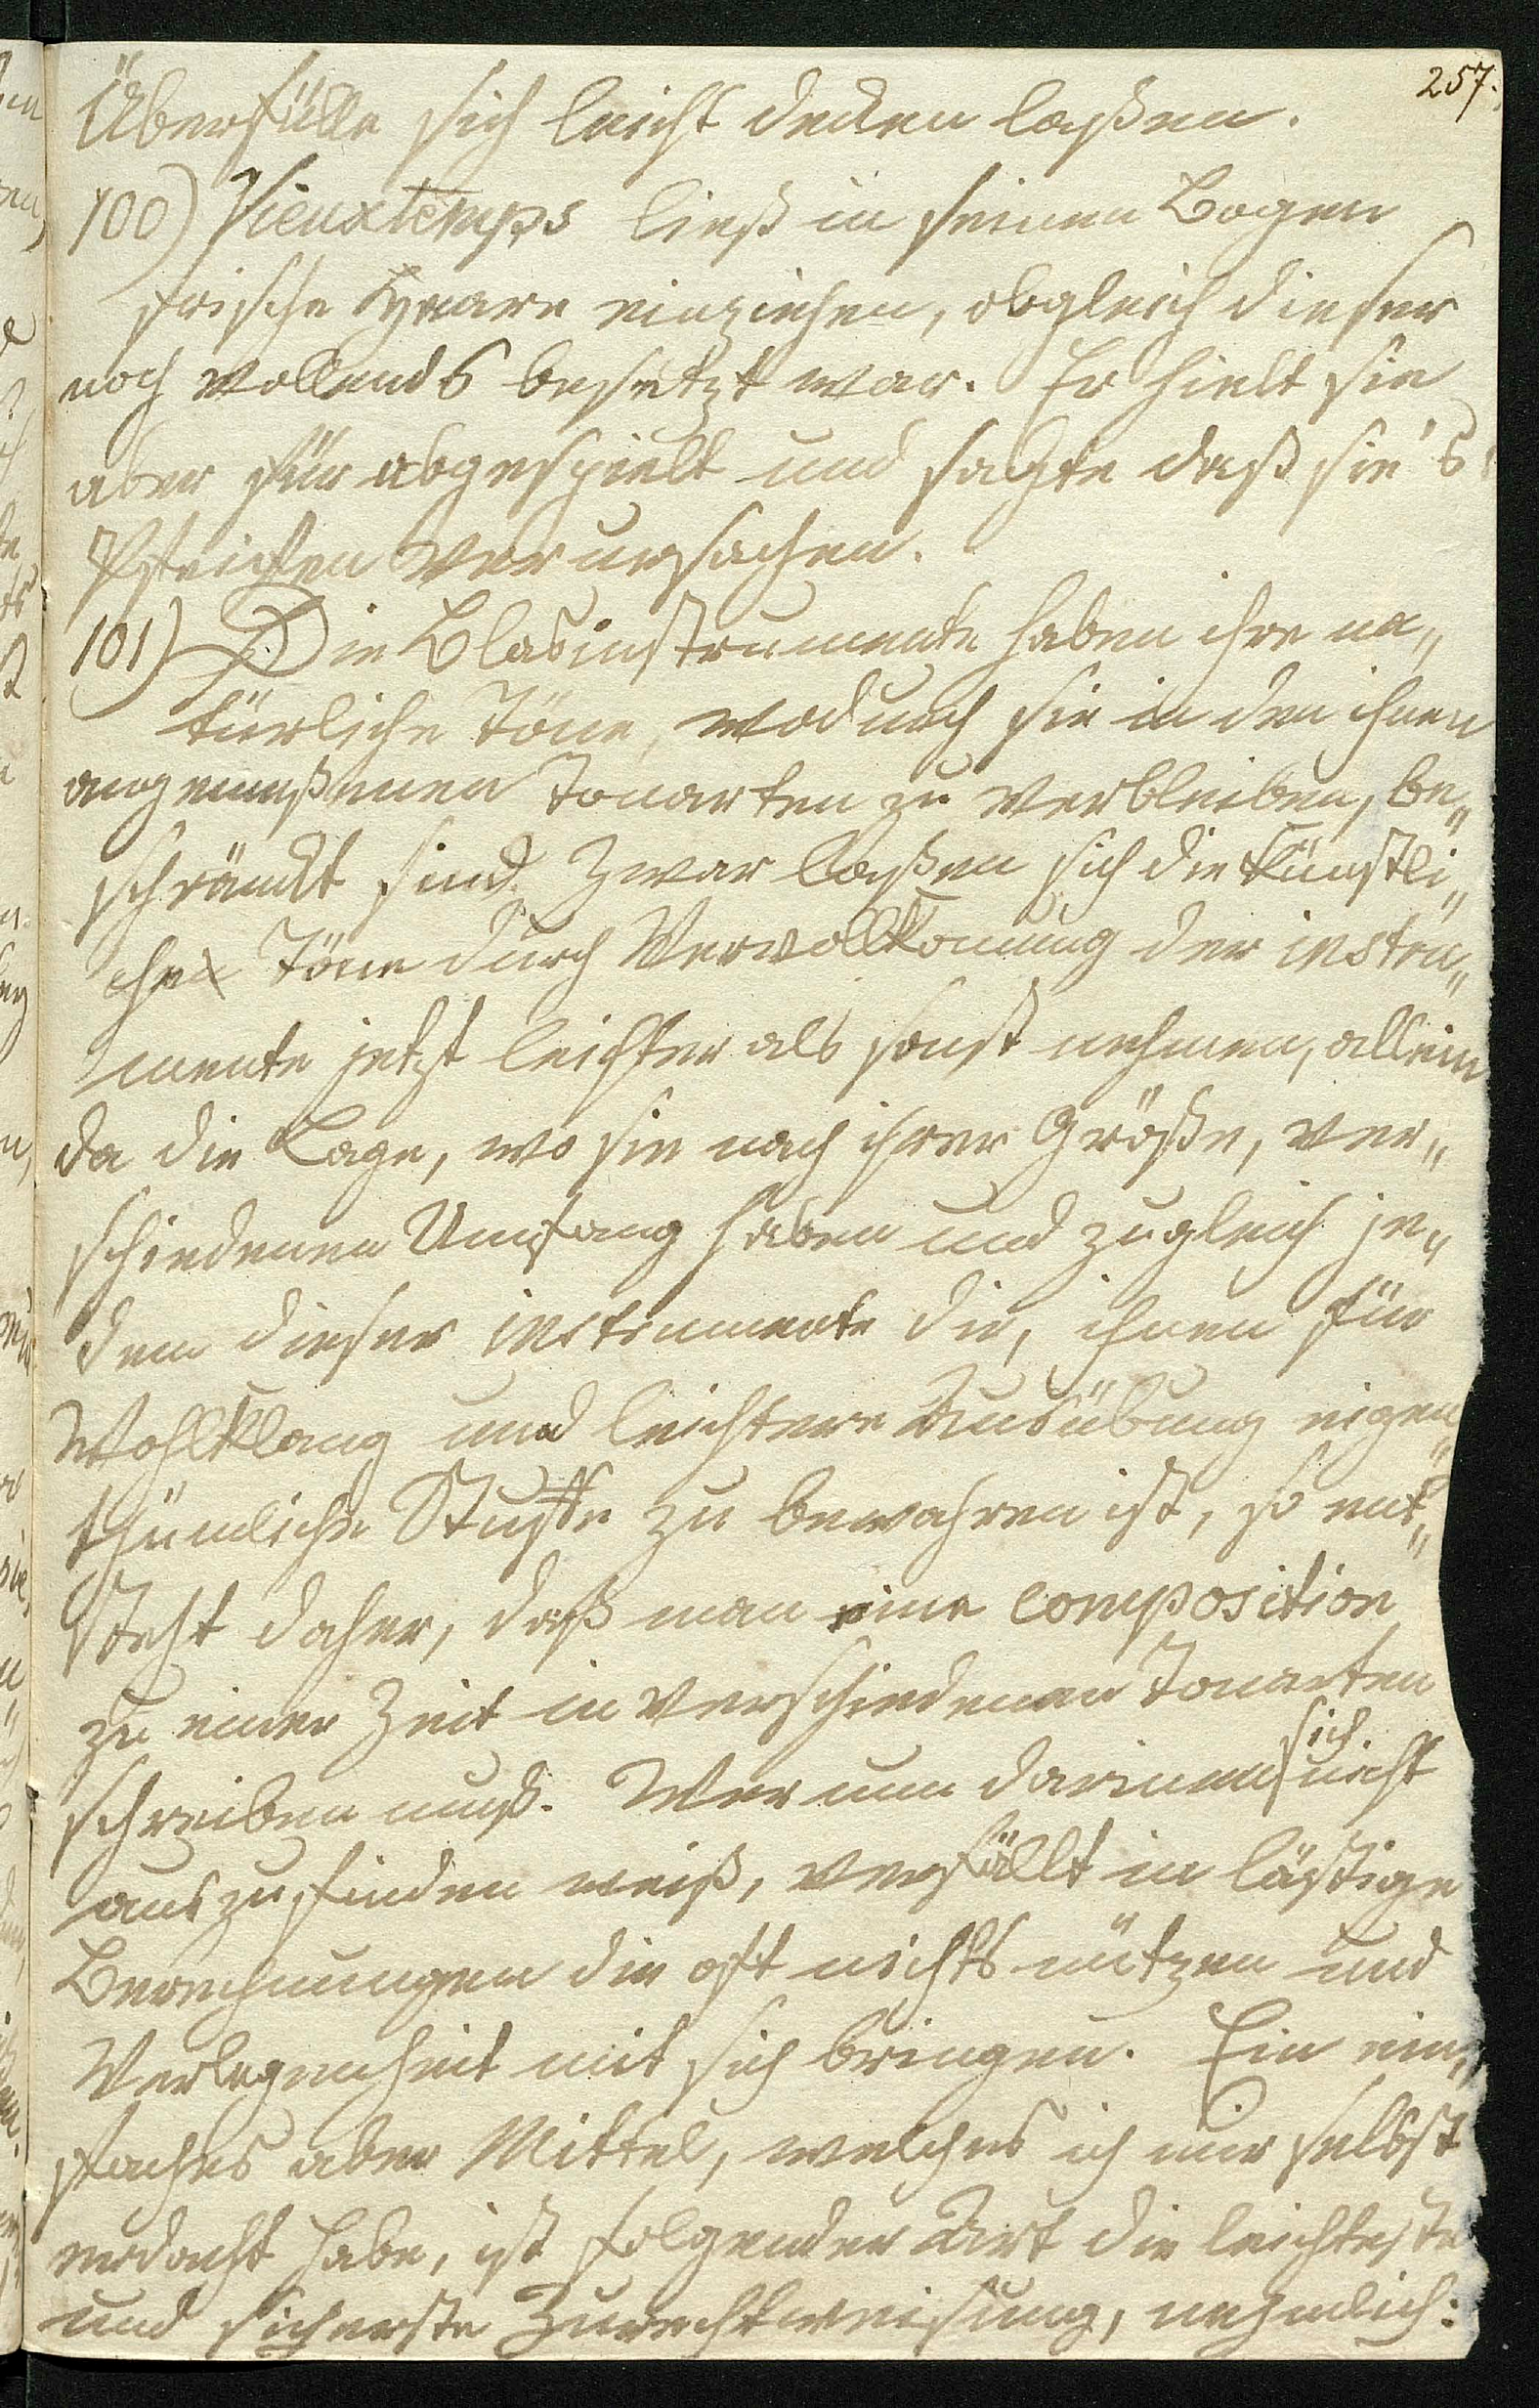 257.
Überfülle sich leicht decken laßen.
100) Vieuxtemps ließ in seinen Bogen
frische Haare einziehen, obgleich dieser
noch vollends besetzt war. Er hielt sie
aber für abgespielt und sagte daß sie's
Pfeiffen verursachen.
101) Die Blasinstrumente haben ihre na„
türliche Töne, wodurch sie in den ihnen
angemeßenen Tonarten zu verbleiben, be„
schränkt sind. Zwar laßen sich die künstli„
che Töne durch Vervollkomung der instru„
mente jetzt leichter als sonst nehmen, allein
da die Lage, wo sie nach ihrer Größe, ver„
schiedenen Umfang haben und zugleich je„
dem dieser instrumente die, ihnen für
Wohlklang und leichtere Ausübung eigen„
thümliche Stuffe zu bewahren ist, so ent„
steht daher, daß man eine composition
zu einer Zeit in verschiedenen Tonarten
schreiben muß. Wer nun darinen sich nicht
auszufinden weiß, verfällt in lästige
Berechnungen die oft nichts nützen und
Verlegenheit mit sich bringen. Ein ein„
faches aber Mittel, welches ich mir selbst
erdacht habe, ist folgender Art die leichteste
und sicherste Zurechtweisung, nehmlich: